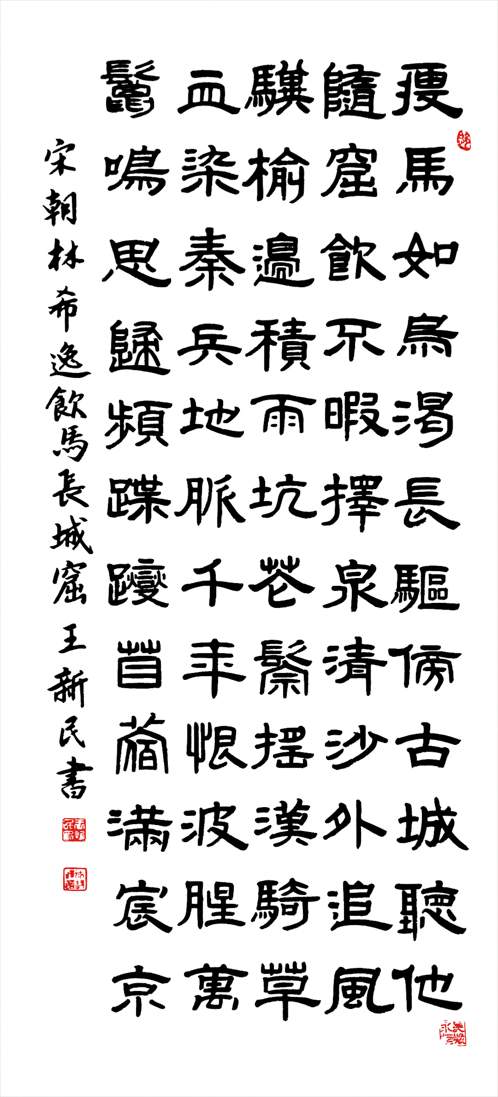 瘦馬如烏渴長驅傍古城聽他
隨窟飲不暇擇泉清沙外追風
驥榆邊積雨坑花鬃搖漢騎草
血染秦兵地脈千年恨波腥萬
鬣鳴思歸頻蹀躞苜蓿滿宸京
宋朝林希逸飲馬長城窟 王新民書